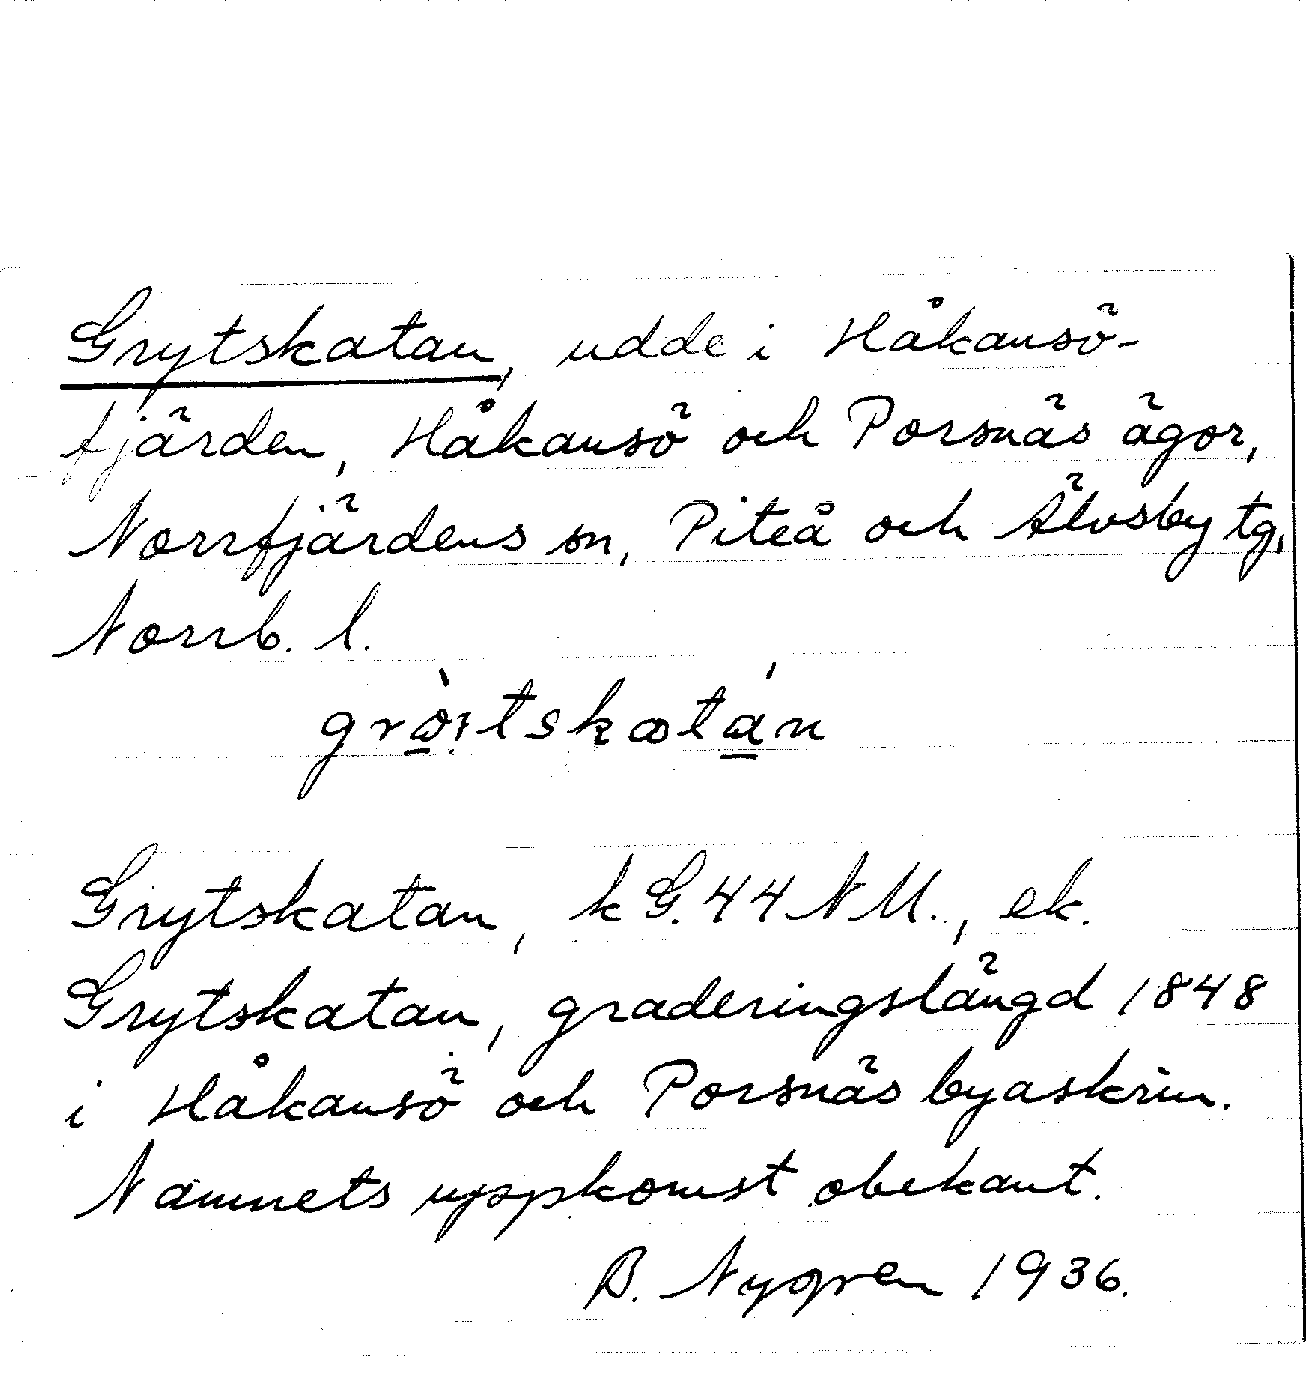 Grytskatan, udde i Håkansö-
fjärden, Håkansö och Porsnäs ägor,
Norrfjärdens sn, Piteå och Älvsby tg,
Norrb. l.
Grytskatan, k G.44 NM., ek.
Grytskatan, graderingslängd 1848
i Håkansö och Porsnäs byaskrin.
Namnets uppkomst obekant.
B. Nygren 1936.